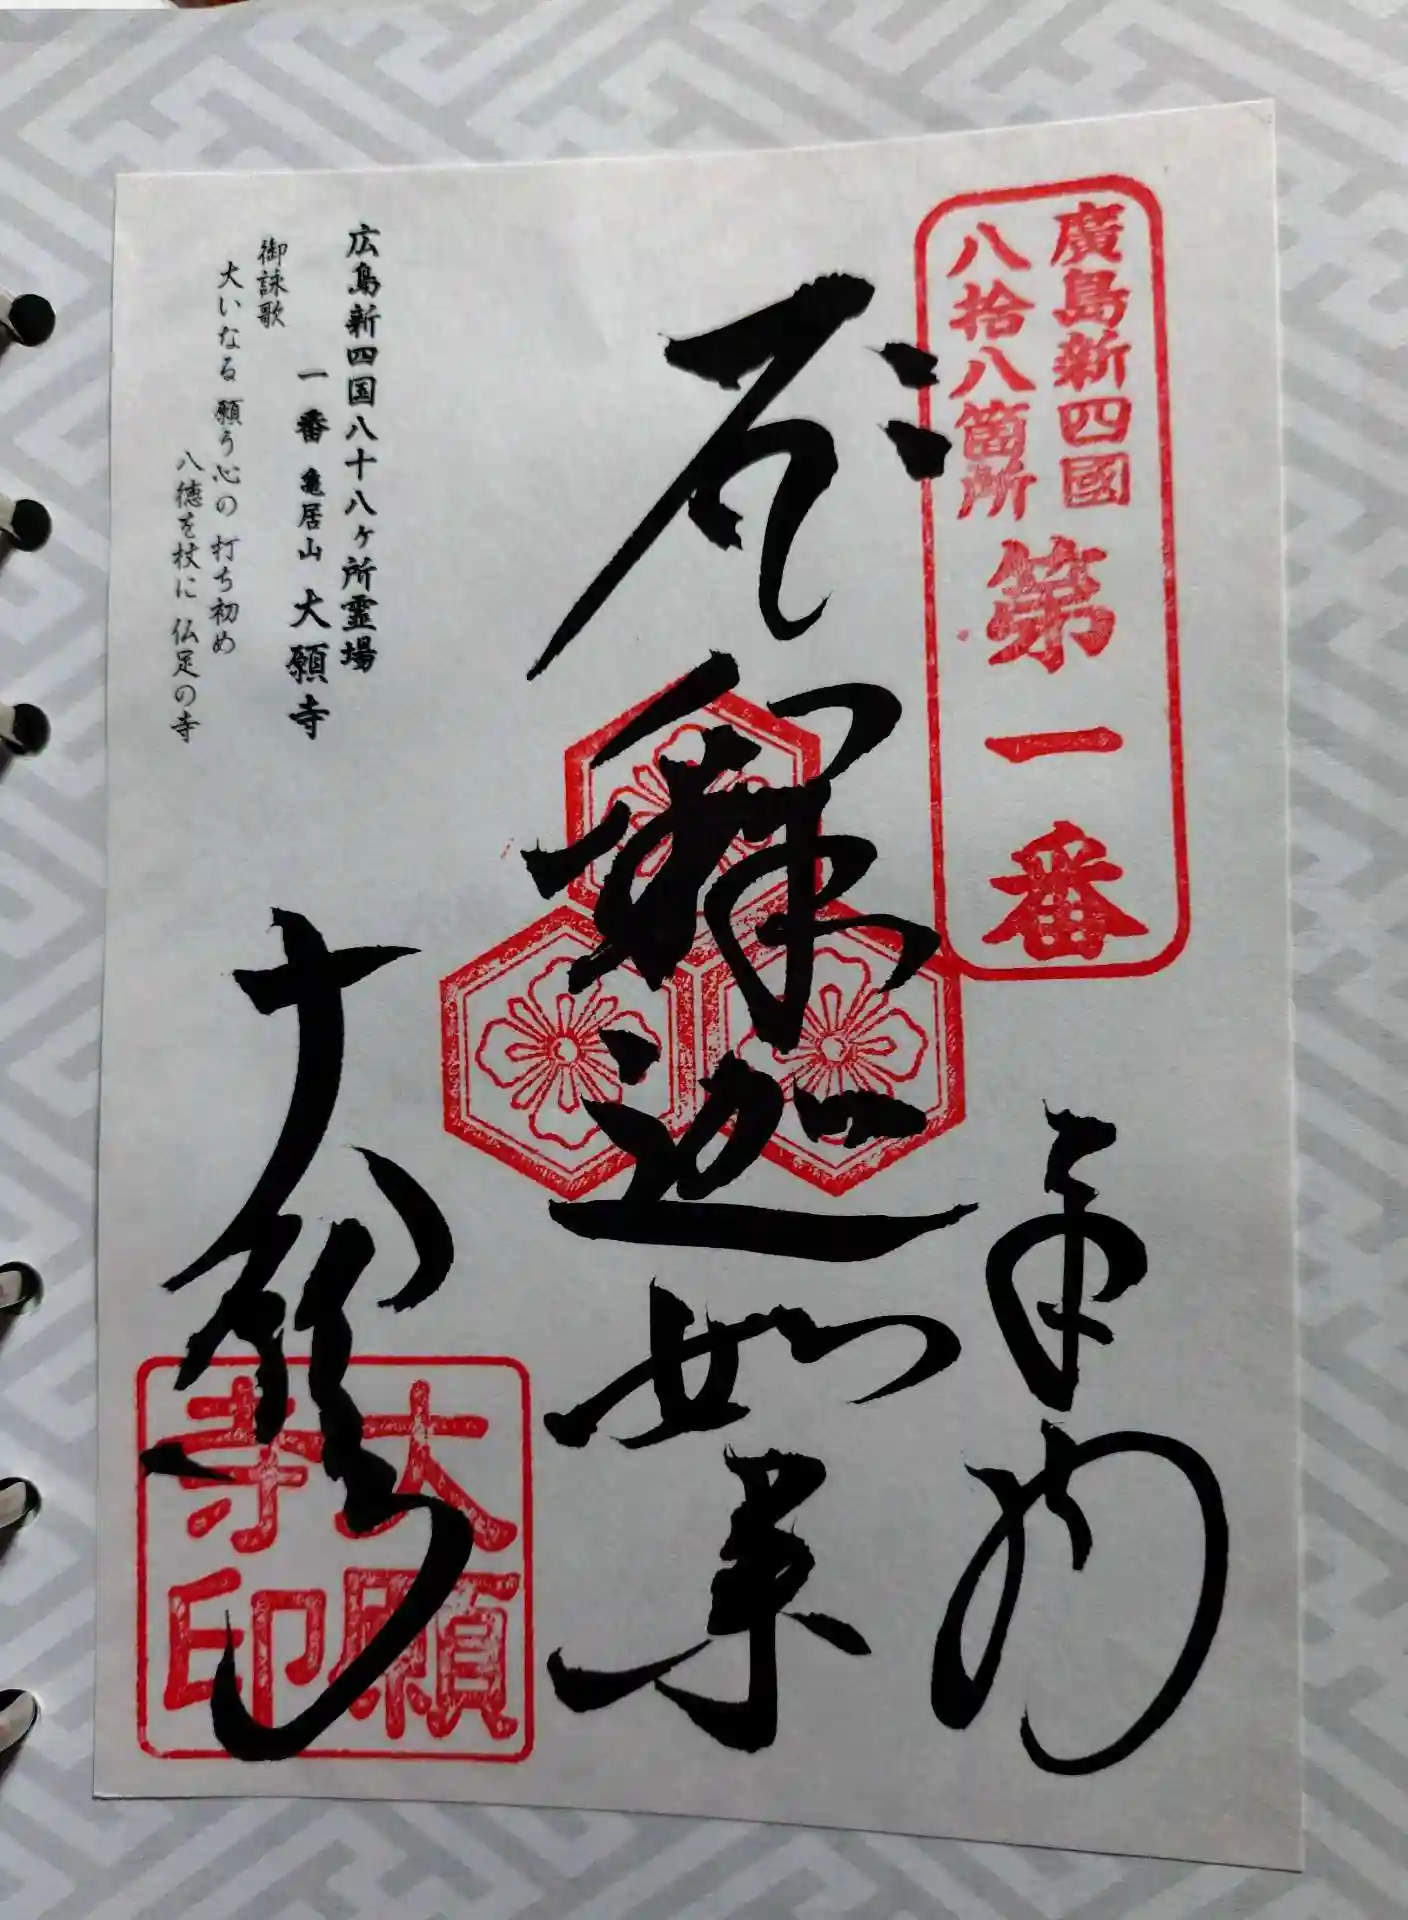 廣島新四國
八拾八箇所
第一番
奉納
釋迦如来
広島新四国八十八ヶ所霊場
一番 亀居山 大願寺
御詠歌
大いなる 願う心の 打ち初め
八徳を杖に 仏足の寺
大願寺
大願
寺印